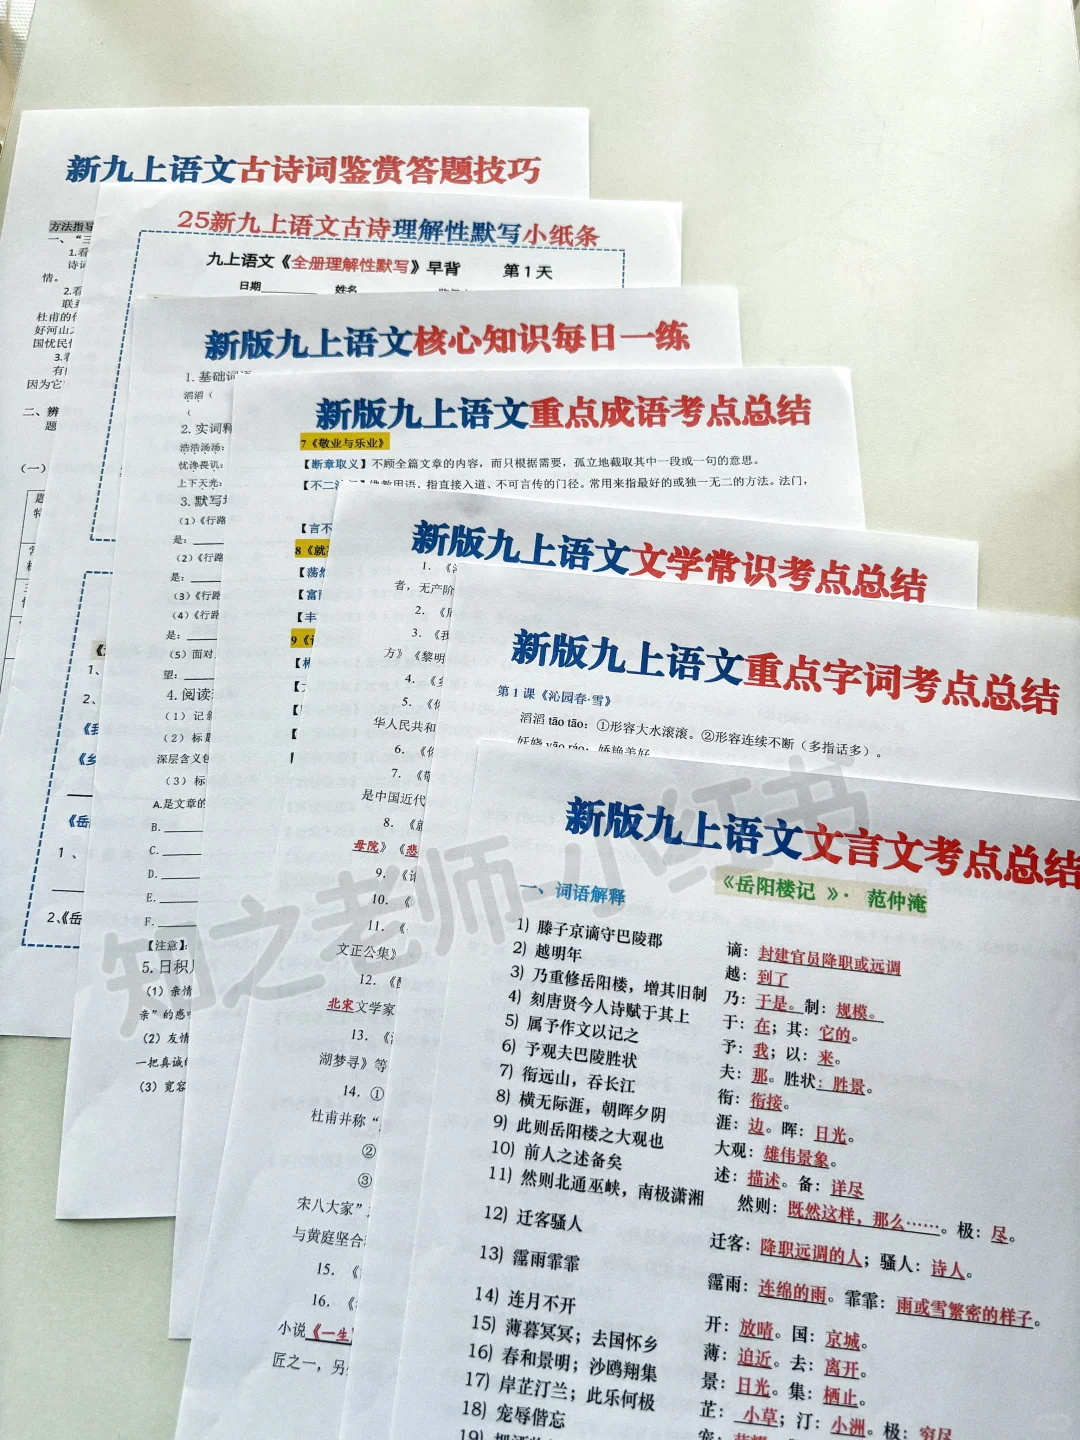 新九上语文古诗词鉴赏答题技巧
方法指导
一、“三
1.看
诗词
情。
2.看
联系
杜甫的作
好河山之
国忧民忄
3.看
有
因为它
二、辨
题
（一）
25新九上语文古诗理解性默写小纸条
九上语文《全册理解性默写》早背 第1天
日期 姓名
1、
2、
《乡
《岳
1、
2、《岳
新版九上语文核心知识每日一练
1. 基础词语
滔滔（
（
2. 实词释
浩浩汤汤：
忧谗畏讥：
上下天光：
3. 默写
（1）《行路
是：
（2）《行路
是：
（3）《行路
（4）《行路
是：
（5）面对
望：
4. 阅读
（1）记叙
（2）标题
深层含义包
（3）标
A.是文章的
B.
C.
D.
E.
F.
【注意】
5. 日积月
（1）亲情
亲”的感
（2）友情
一把真诚的
（3）宽容
新版九上语文重点成语考点总结
7《敬业与乐业》
【断章取义】不顾全篇文章的内容，而只根据需要，孤立地截取其中一段或一句的意思。
【不二法门】佛教用语，指直接入道、不可言传的门径。常用来指最好的或独一无二的方法。法门，
【言不
8《就
【荡然
【富丽
【丰
9《
新版九上语文文学常识考点总结
1. 《
者，无产阶
2. 《
3. 《我
方》《黎明
4. 《乡
5. 《你
华人民共和
6. 《你
7. 《敬
是中国近代
8. 《就
母院》《悲
9. 《论
10. 《
11. 《
文正公集》
12. 《醉
北宋文学家
13. 《湖
湖梦寻》等
14. ①
杜甫并称“
②
③
宋八大家”
与黄庭坚合
15. 《
16. 《
小说《一生
匠之一，另
新版九上语文重点字词考点总结
第 1 课《沁园春·雪》
滔滔 tāo tāo：①形容大水滚滚。②形容连续不断（多指话多）。
妖娆 yāo ráo：娇艳美好
新版九上语文文言文考点总结
《岳阳楼记 》· 范仲淹
一、词语解释
1) 滕子京谪守巴陵郡 谪：封建官员降职或远调
2) 越明年 越：到了
3) 乃重修岳阳楼，增其旧制 乃：于是。制：规模。
4) 刻唐贤今人诗赋于其上 于：在；其：它的。
5) 属予作文以记之 予：我；以：来。
6) 予观夫巴陵胜状 夫：那。胜状：胜景。
7) 衔远山，吞长江 衔：衔接。
8) 横无际涯，朝晖夕阴 涯：边。晖：日光。
9) 此则岳阳楼之大观也 大观：雄伟景象。
10) 前人之述备矣 述：描述。备：详尽
11) 然则北通巫峡，南极潇湘 然则：既然这样，那么……。极：尽。
12) 迁客骚人 迁客：降职远调的人；骚人：诗人。
13) 霪雨霏霏 霪雨：连绵的雨。霏霏：雨或雪繁密的样子。
14) 连月不开 开：放晴。国：京城。
15) 薄暮冥冥；去国怀乡 薄：迫近。去：离开。
16) 春和景明；沙鸥翔集 景：日光。集：栖止。
17) 岸芷汀兰；此乐何极 芷：小草；汀：小洲。极：穷尽
18) 宠辱偕忘 宠：荣耀
19)
知之老师 小红书